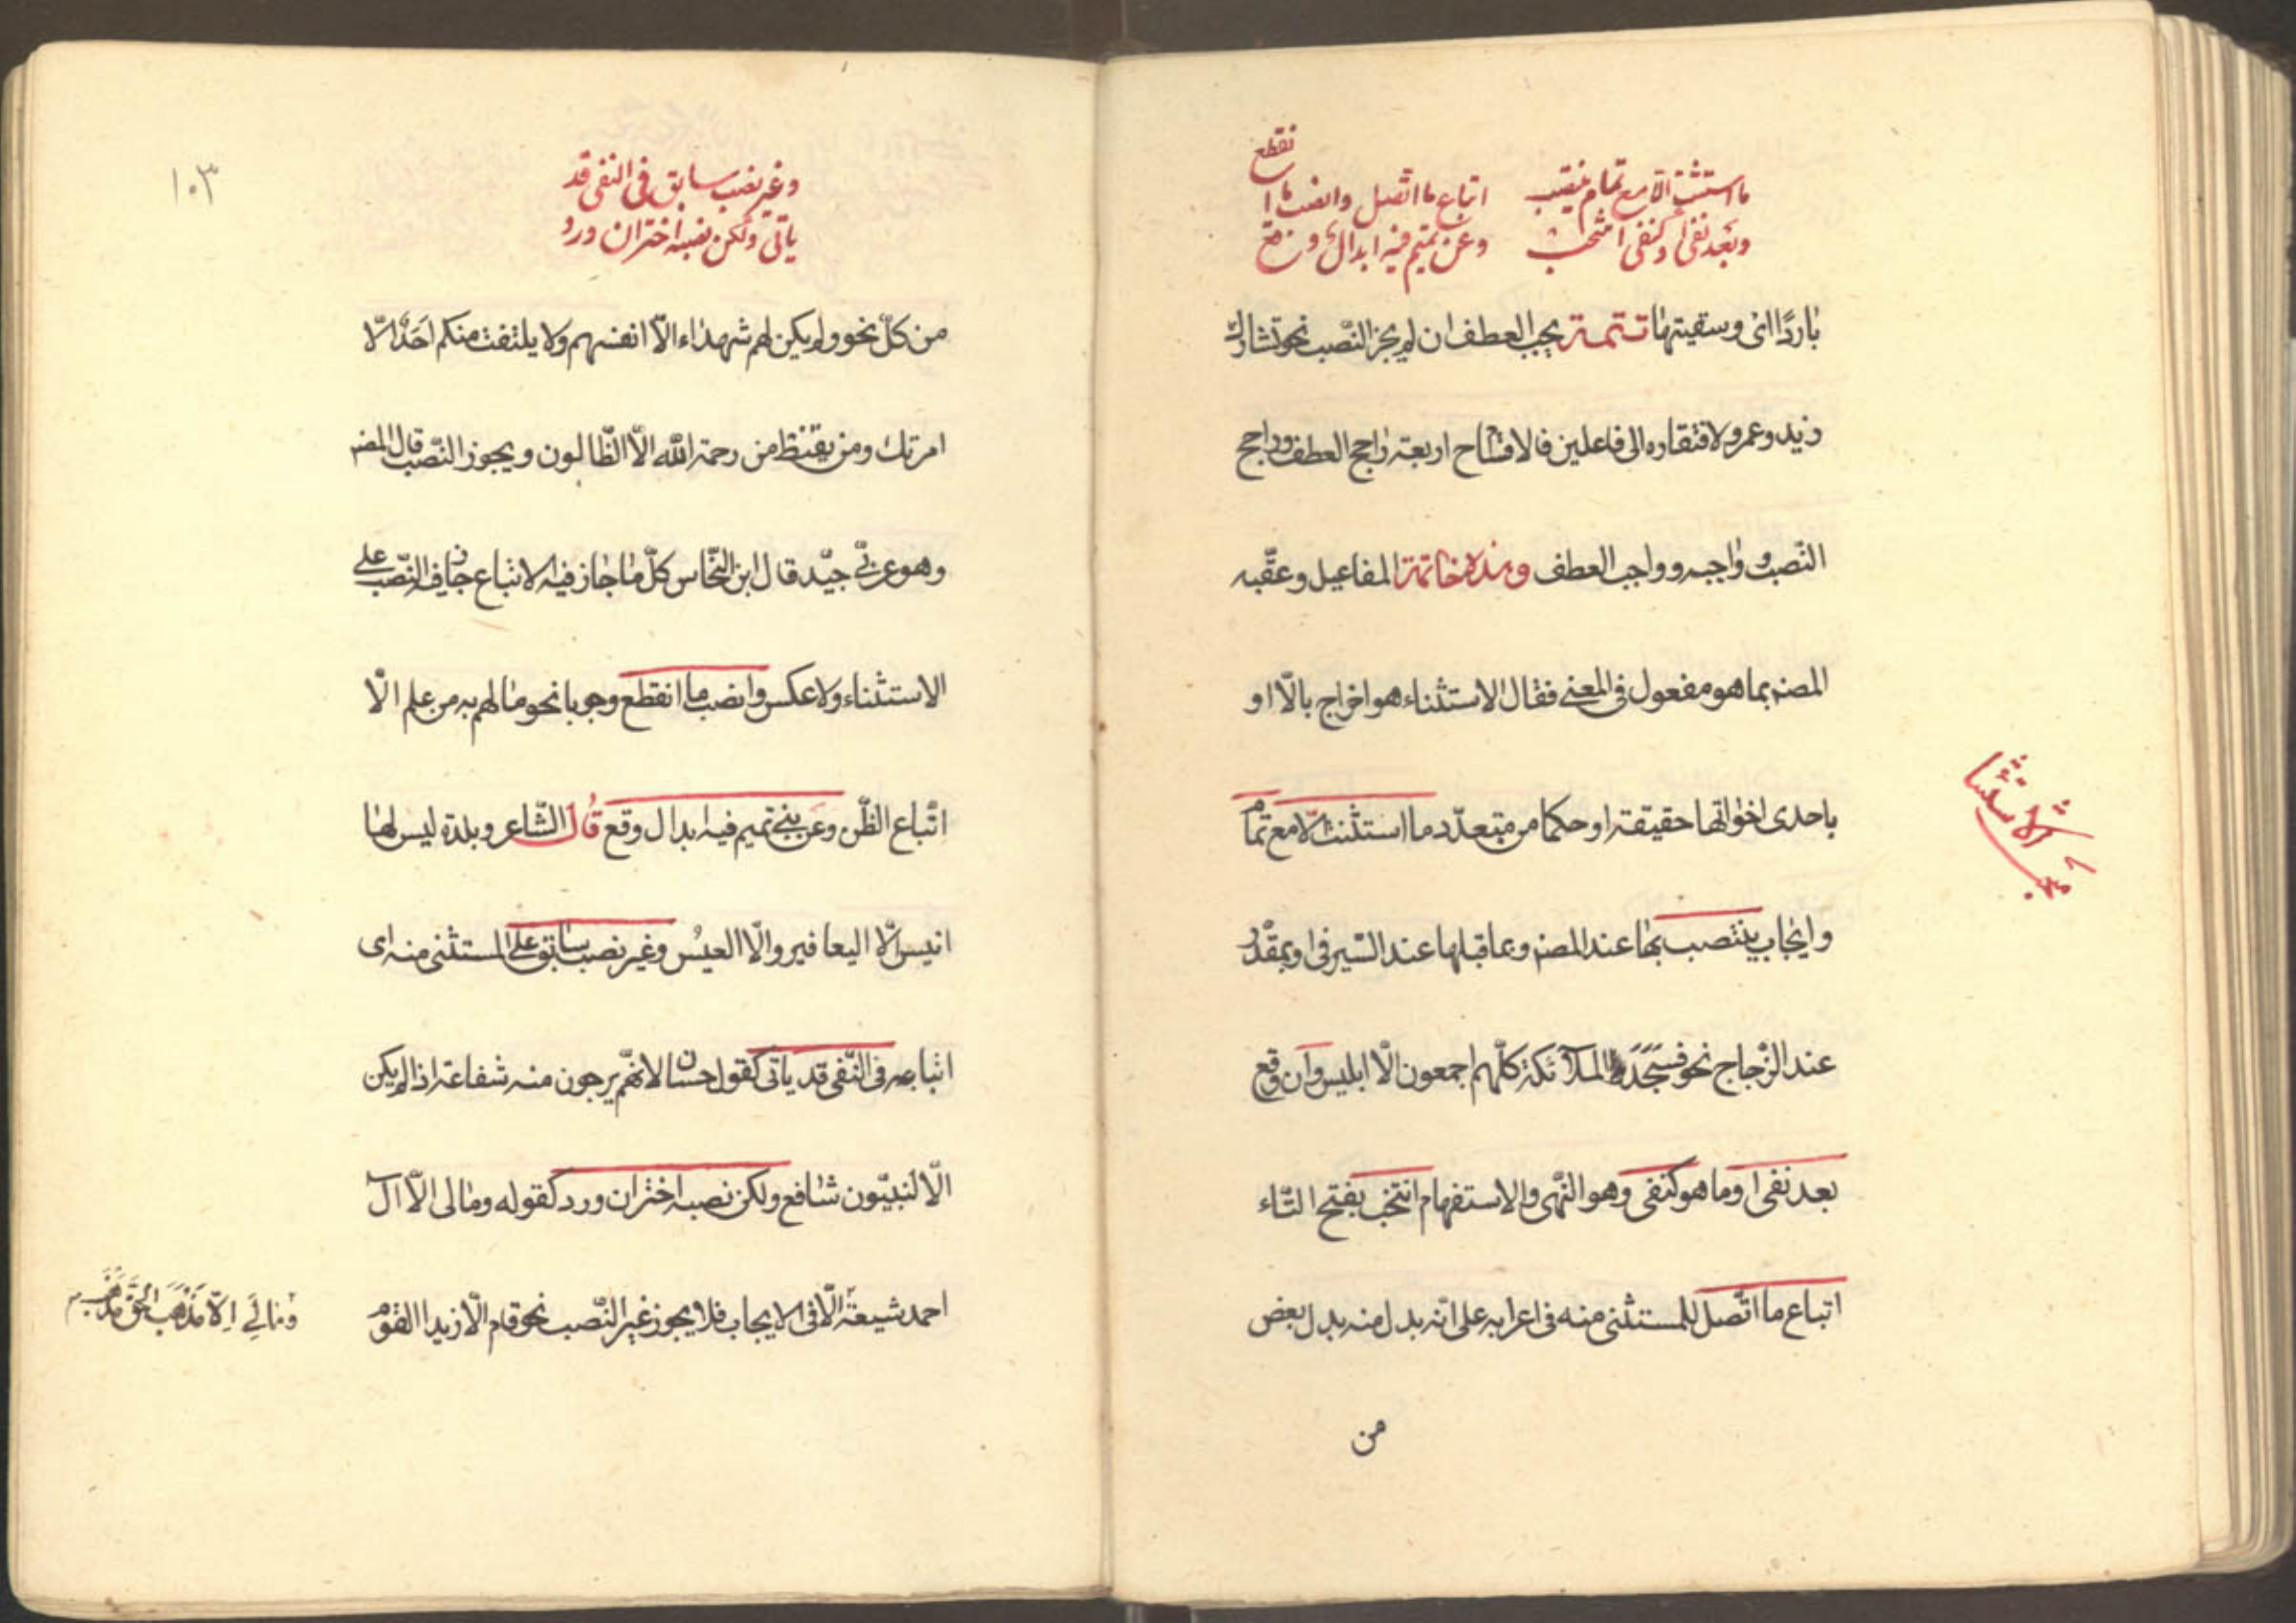 ما استثنت الا مع تمام ينتصب
وبعد نفی او کنفی انتخب
اتباع ما اتصل وانصب ما انقطع
وعن تمیم فیه ابدال وقع
باردًا ای وسقیتها تتمة یجب العطف ان لم یجز النّصب نحو تشارك
زید وعمرو لافتقاره الی فاعلین فالاقسام اربعة راجح العطف وراجح
النّصب و واجبه وواجب العطف وهذه خاتمة المفاعیل وعقّبه
المصنه بما هو مفعول فی المعنی فقال الاستثناء هو اخراج بالّا او
باحدی اخواتها حقیقة او حکما من متعدّد ما استثنت الّا مع تمام
وایجاب ینتصب بها عند المصنه وبما قبلها عند السّیرفی او بمقدّر
عند الزّجاج نحو فسجد الملآئکة کلّهم اجمعون الّا ابلیس وان وقع
بعد نفی او ما هو کنفی وهو النّهی والاستفهام انتخب بفتح التّاء
اتباع ما اتّصل للمستثنی منه فی اعرابه علی انّه بدل منه بدل بعض
من
الاستثنا
۱۰۳
وغیر نصب سابق فی النفی قد
یاتی ولکن نصبه اختر ان ورد
من کلّ نحو ولم یکن لهم شهداء الّا انفسهم ولا یلتفت منکم احَدٌ الّا
امرتك ومن یقنط من رحمة الله الّا الظّالون ویجوز النّصب قال المصنه
وهو عربّی جیّد قال ابن النّحاس کلّ ما جاز فیه الاتباع جاز فیه النّصب علی
الاستثناء ولا عکس وانصب ما انقطع وجوبا نحو ما لهم به من علم الّا
اتّباع الظّن وعن بنی تمیم فیه ابدال وقع قال الشّاعر وبلدة لیس لها
انیس الّا الیعافیر والّا العیسُ وغیر نصب سابق علی المستثنی منه ای
اتباعه فی النّفی قد یاتی کقول حسان لانهّم یرجون منه شفاعة اذا لم یکن
الّا النبیّون شافع ولکن نصبه اختر ان ورد کقوله وما لی الّا آل
احمد شیعة الّا فی الایجاب فلا یجوز غیر النّصب نحو قام الّا زیدا القوم
وَمَا لِیَ اِلّا مَذْهَبَ الْحَقِّ مَذْهَبٌ